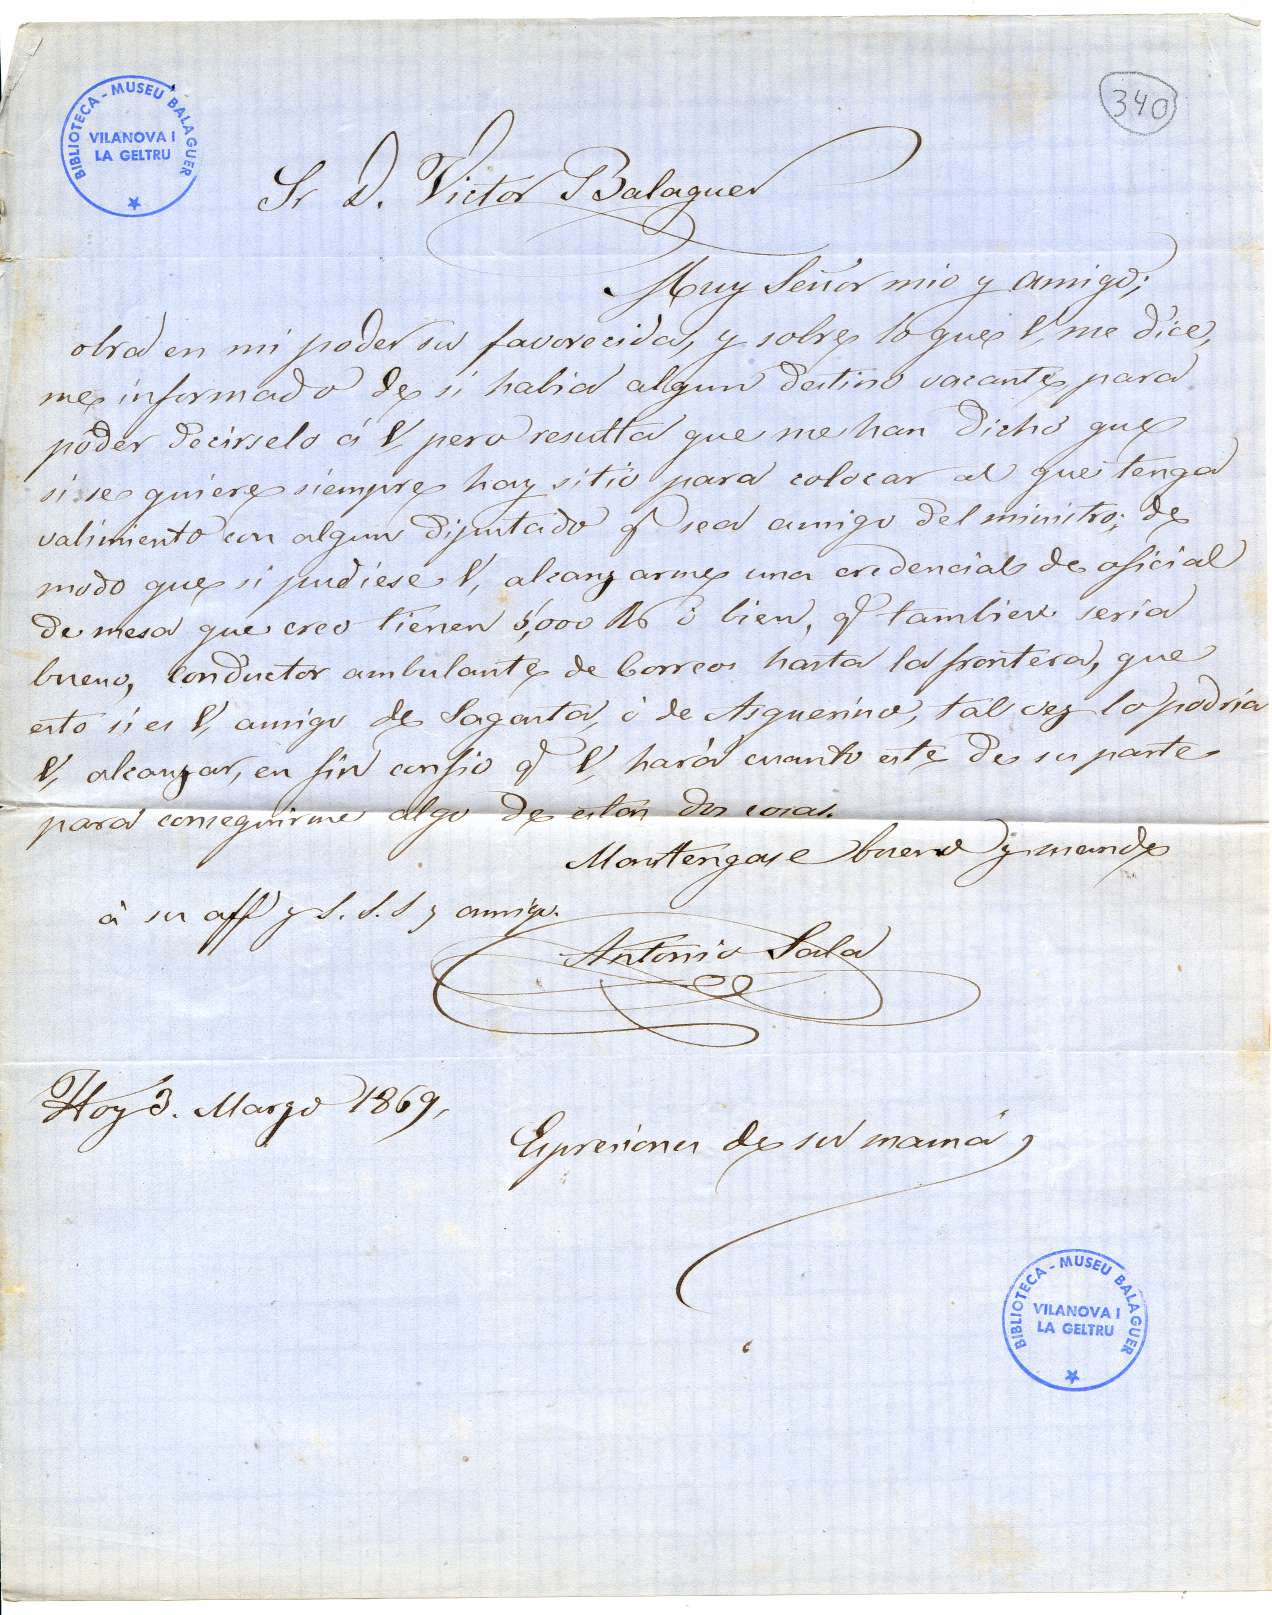 BIBLIOTECA - MUSEU BALAGUER
VILANOVA I
LA GELTRU
340
Sr D. Victor Balaguer
Muy Señor mio y amigo;
obra en mi poder su favorecida, y sobre lo que V, me dice,
me informado de si habia algun destino vacante para
poder decirselo á V, pero resulta que me han dicho que
si se quiere siempre hay sitio para colocar al que tenga
valimiento con algun diputado q sea amigo del ministro; de
modo que si pudiese V, alcanzarme una credencial de oficial
de mesa que creo tienen 5,000 ó bien, q tambien seria
bueno, conductor ambulante de Correos hasta la frontera, que
esto si es V, amigo de Sagasta, ó de Asquerino, tal vez lo podria
V, alcanzar, en fin confio q V, hará cuanto este de su parte
para conseguirme algo de estas dos cosas.
Mantengase bueno y mande
á su aff y S. S. S y amigo.
Antonio Sala
Hoy 3. Marzo 1869,
Espresiones de su mamá,
BIBLIOTECA - MUSEU BALAGUER
VILANOVA I
LA GELTRU